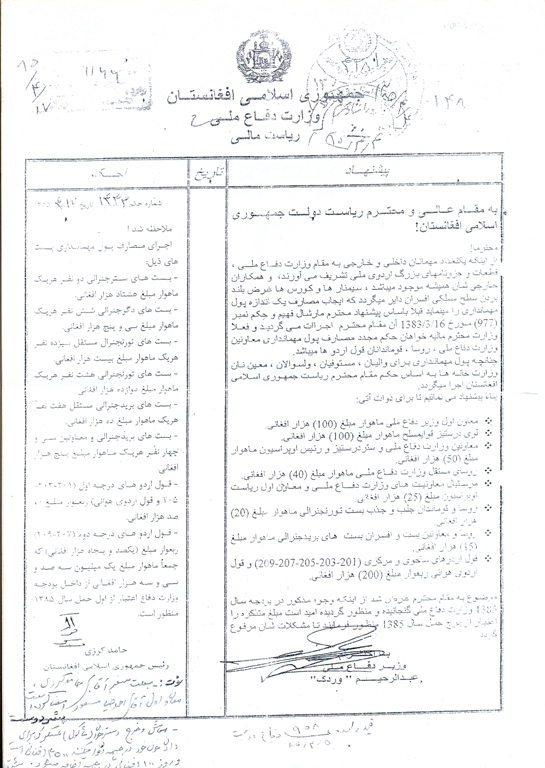 جمهوری اسلامی افغانستان
وزارت دفاع ملی
ریاست مالی
پیشنهاد
تاریخ
احکام
به مقام عالی و محترم ریاست دولت جمهوری
اسلامی افغانستان!
محترما!
از اینکه یکتعداد مهمانان داخلی و خارجی به مقام وزارت دفاع ملی ،
قطعات و جزوتامهای بزرگ اردوی ملی تشریف می آورند، و همکاران
خارجی شان همیشه موجود میباشد ، سیمنار ها و کورس ها غرض بلند
بردن سطح مسلکی افسران دایر میگردد که ایجاب مصارف یک اندازه پول
مهمانداری را مینماید قبلا باساس پیشنهاد محترم مارشال فهیم و حکم نمبر
(977) مورخ 1383/3/16 آن مقام محترم اجراات می گردید و فعلا
وزارت محترم مالیه خواهان حکم مجدد مصارف پول مهمانداری معاونین
وزارت دفاع ملی ، روسا ، قوماندانان قول اردو ها میباشد.
چنانچه پول مهمانداری برای والیان ، مستوفیان ، ولسوالان ، معین نان
وزارت خانه ها به اساس حکم مقام محترم ریاست جمهوری اسلامی
افغانستان اجرا میگردد.
بناء پیشنهاد می نمائیم تا برای ذوات آتی:
معاون اول وزیر دفاع ملی ماهوار مبلغ (100) هزار افغانی.
لوی درستیز قوایمسلح ماهوار مبلغ (100) هزار افغانی.
معاونین وزارت دفاع ملی و ستردرستیز و رئیس اوپراسیون ماهوار
مبلغ (50) هزار افغانی.
روسای مستقل وزارت دفاع ملی ماهوار مبلغ (40) هزار افغانی.
مبلغ (25) هزار افغانی.
روسا و قوماندانان جلب و جذب بست تورنجنرالی ماهوار مبلغ (20)
هزار افغانی.
روسا و معاونین بست و افسران بست های بریدجنرالی ماهوار مبلغ
(15) هزار افغانی.
قول اردوهای ساحوی و مرکزی (201-203-205-207-209) و قول
اردوی هوائی ربعوار مبلغ (200) هزار افغانی.
موضوع به مقام محترم عرض شد از اینکه وجوه مذکور در بودجه سال
1385 وزارت دفاع ملی گنجانیده و منظور گردیده امید است مبلغ متذکره را
اعتبار از برج حمل سال 1385 منظور فرمایند تا مشکلات شان مرفوع
گردد
با احترام
وزیر دفاع ملی
عبدالرحیم " وردک"
شماره حکم ۱۴۴۳ تاریخ
ملاحظه شد !
اجرای مصارف پول مهمانداری بست
های ذیل:
- بست های سترجنرالی دو نفر هریک
ماهوار مبلغ هشتاد هزار افغانی.
- بست های دگرجنرالی شش نفر هریک
ماهوار مبلغ سی و پنج هزار افغانی.
- بست های تورنجنرال مستقل سیزده نفر
هریک ماهوار مبلغ بیست هزار افغانی.
- بست های تورنجنرالی هشت نفر هریک
ماهوار مبلغ دوازده هزار افغانی.
- بست های بریدجنرالی مستقل هفت نفر
هریک ماهوار مبلغ ده هزار افغانی.
- بست های بریدجنرالی و معاونین سی و
چهار نفر هریک ماهوار مبلغ پنج هزار
افغانی
- قول اردو های درجه اول
صد هزار افغانی.
- قول اردو های درجه دوم (۲۰۷-۲۰۹)
ربعوار مبلغ (یکصد و پنجاه هزار افغانی) که
جمعاً ماهوار مبلغ یک میلیون سه صد و
سی و سه هزار افغانی از داخل بودجه
وزارت دفاع اعتبار از اول حمل سال ۱۳۸۵
منظور است.
حامد کرزی
رئیس جمهوری اسلامی افغانستان